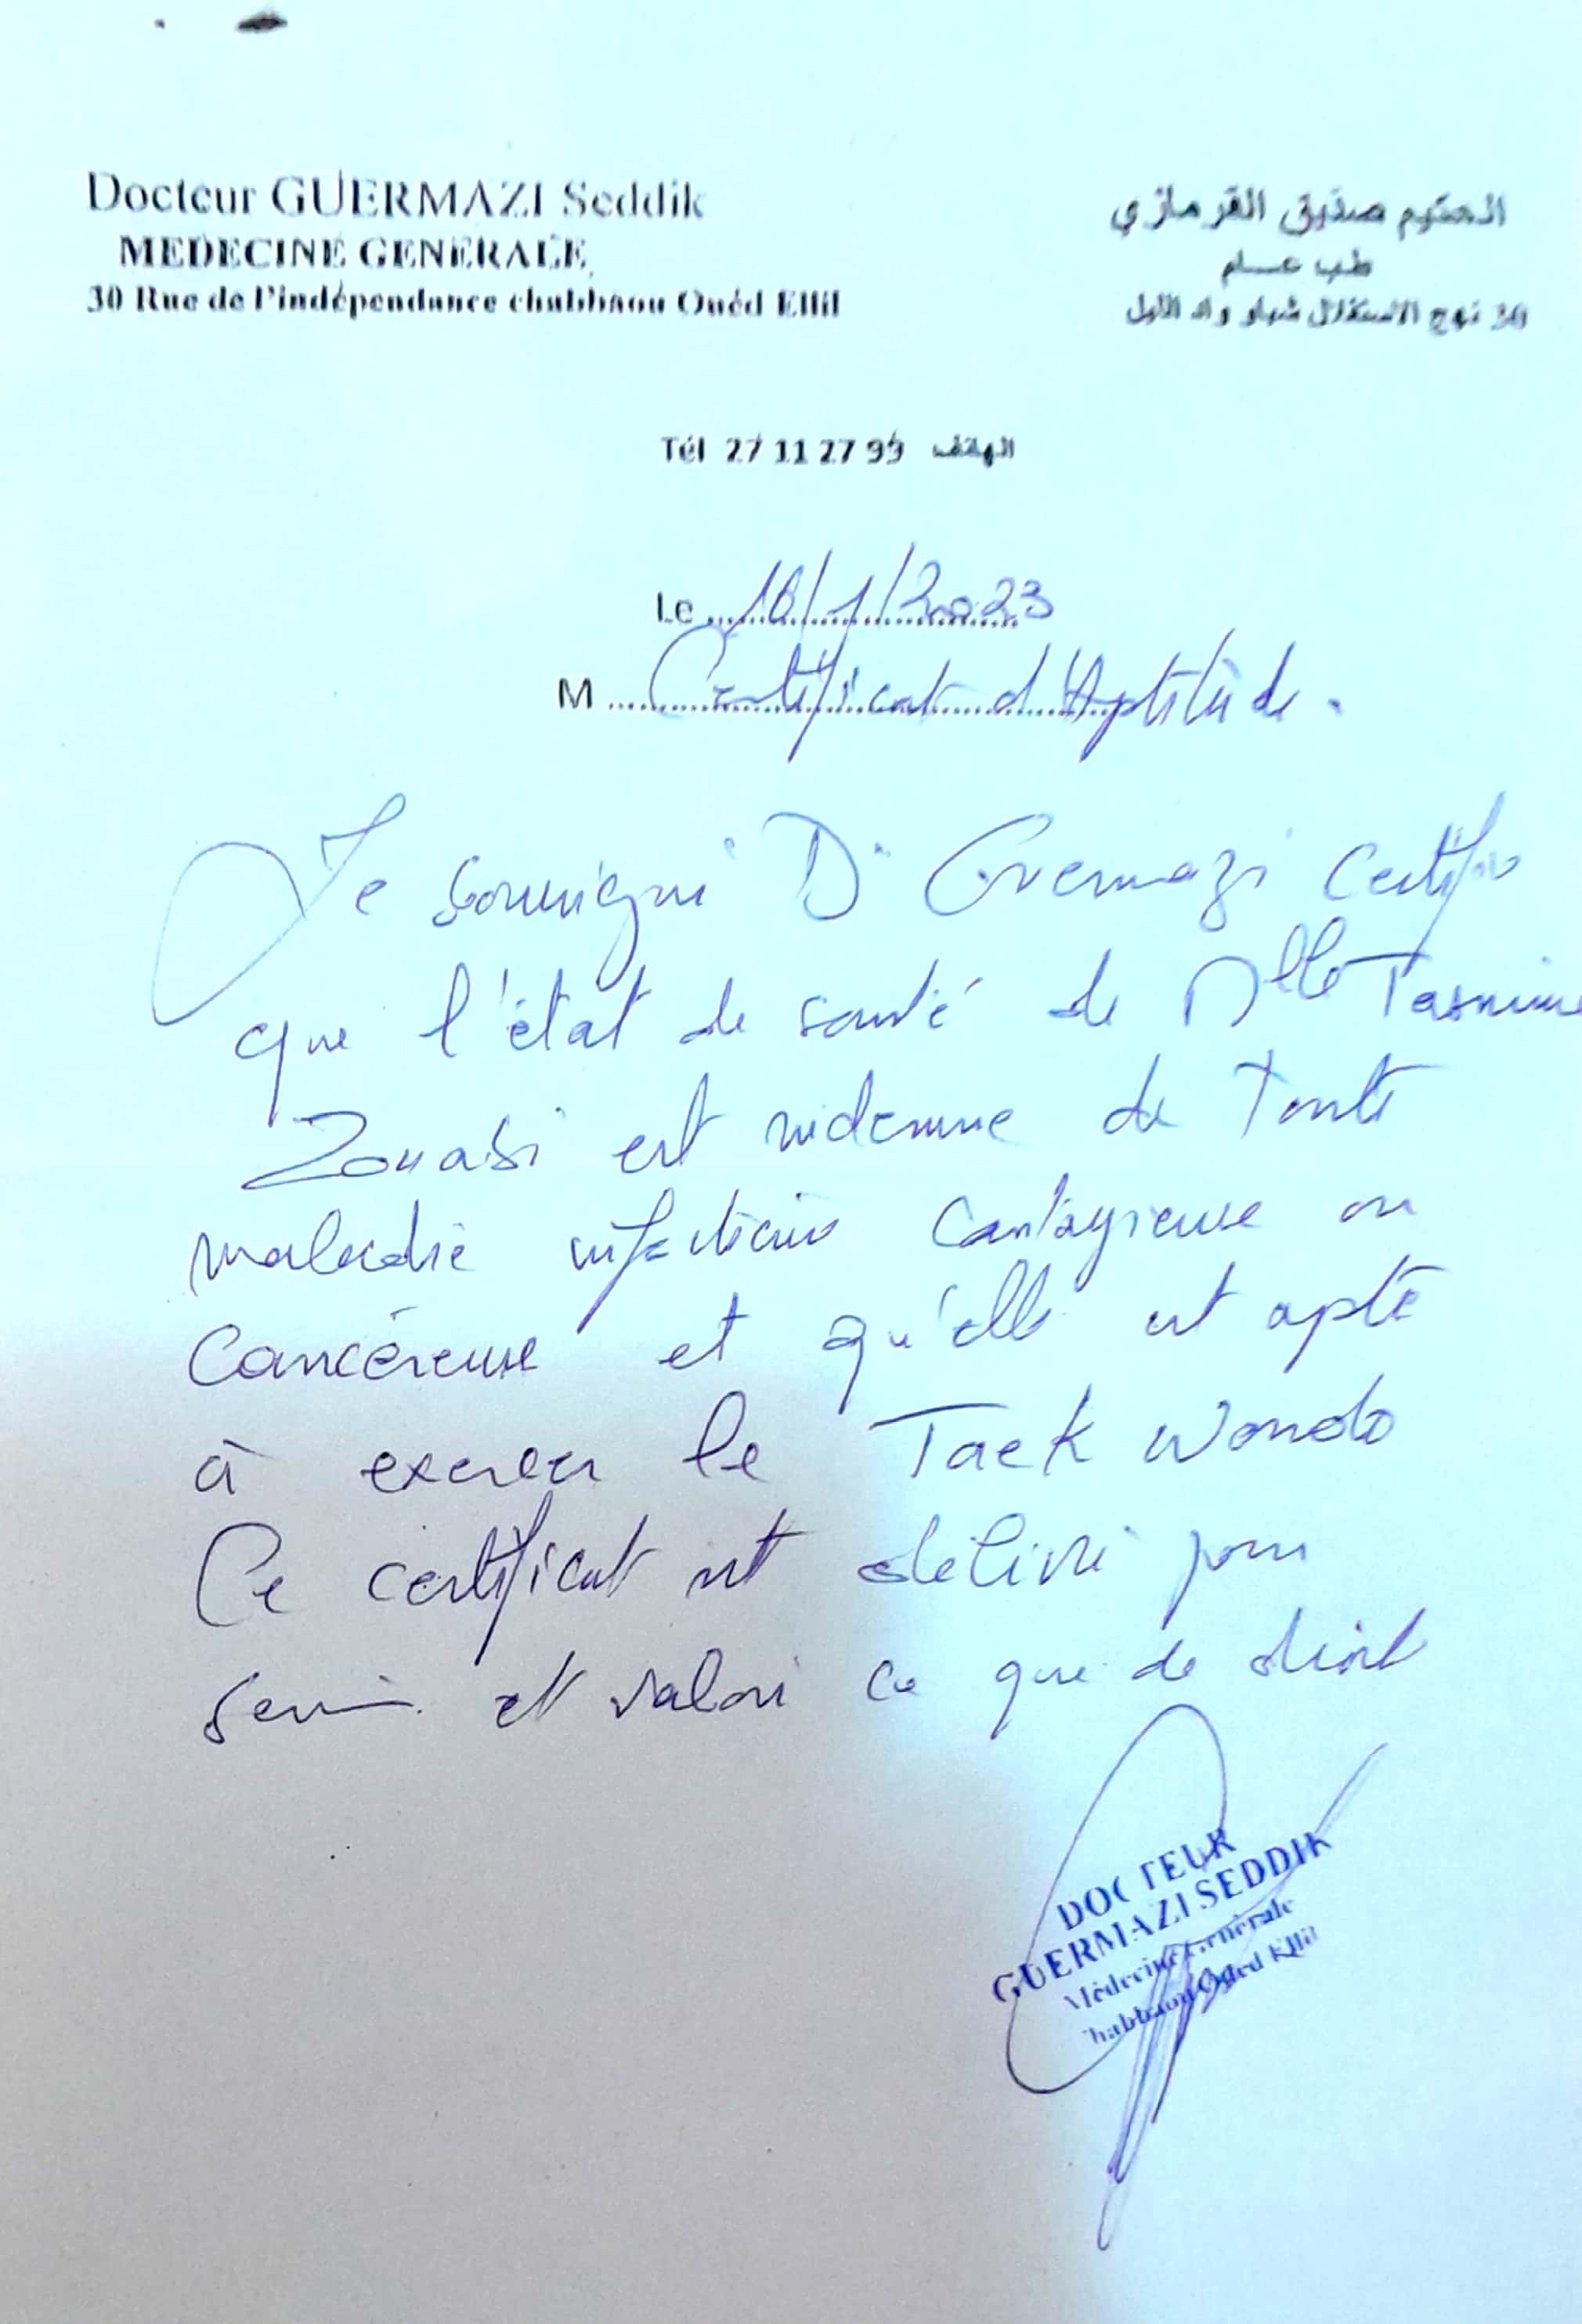 Docteur GUERMAZI Seddik
MEDECINE GENERALE
30 Rue de l'indépendance chabbaou Ouéd Ellil
الحكيم صديق القرمازي
طب عــام
30 نهج الاستقلال شباو واد الليل
Tél 27 11 27 99 الهاتف
Le 16/1/2023
M Certificat d'Aptitude.
Je soussigné Dr Guermazi certifie
que l'état de santé de Mlle Tasnime
Zouabi est indemne de toute
maladie infectieuse contagieuse ou
cancéreuse et qu'elle est apte
à exercer le Taek wondo
Ce certificat est délivré pour
servir et valoir ce que de droit
DOCTEUR
GUERMAZI SEDDIK
Médecine Générale
Chabbaou Oued Ellil